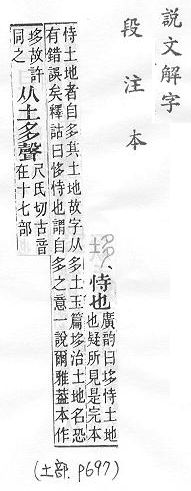 說文解字
段注本
恃也
廣韵曰垑恃土地
也疑所見是完本
恃土地者自多其土地故字从多土玉篇垑治土地名恐
有錯誤矣釋詁曰恀恃也謂自多之意一說爾雅葢本作
垑故許
同之
从土多聲
尺氏切古音
在十七部
(土部. p697)